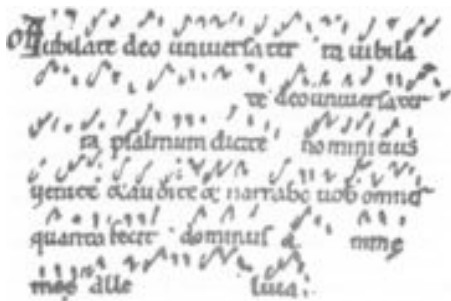 off Iubilate deo universa ter ra iubila
te deo universa ter
ra psalmum dicite nomini eius
venite & audite & narrabo vob omnes
quanta fecit dominus a nime
mee alle luia.